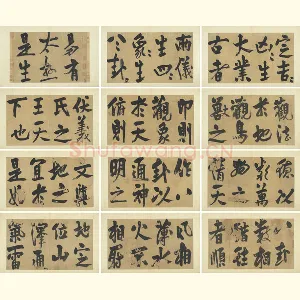 易有
太極
是生
兩儀
生四
象生
八卦
定吉
凶生
大業
古者
伏羲
氏之
王天
下也
仰則
觀象
於天
俯則
觀法
於地
觀鳥
獸之
文與
地之
宜於
是始
作八
卦以
通神
明之
德以
類萬
物之
情天
地定
位山
澤通
氣雷
風相
薄水
火相
射
八卦
相錯
數往
者順